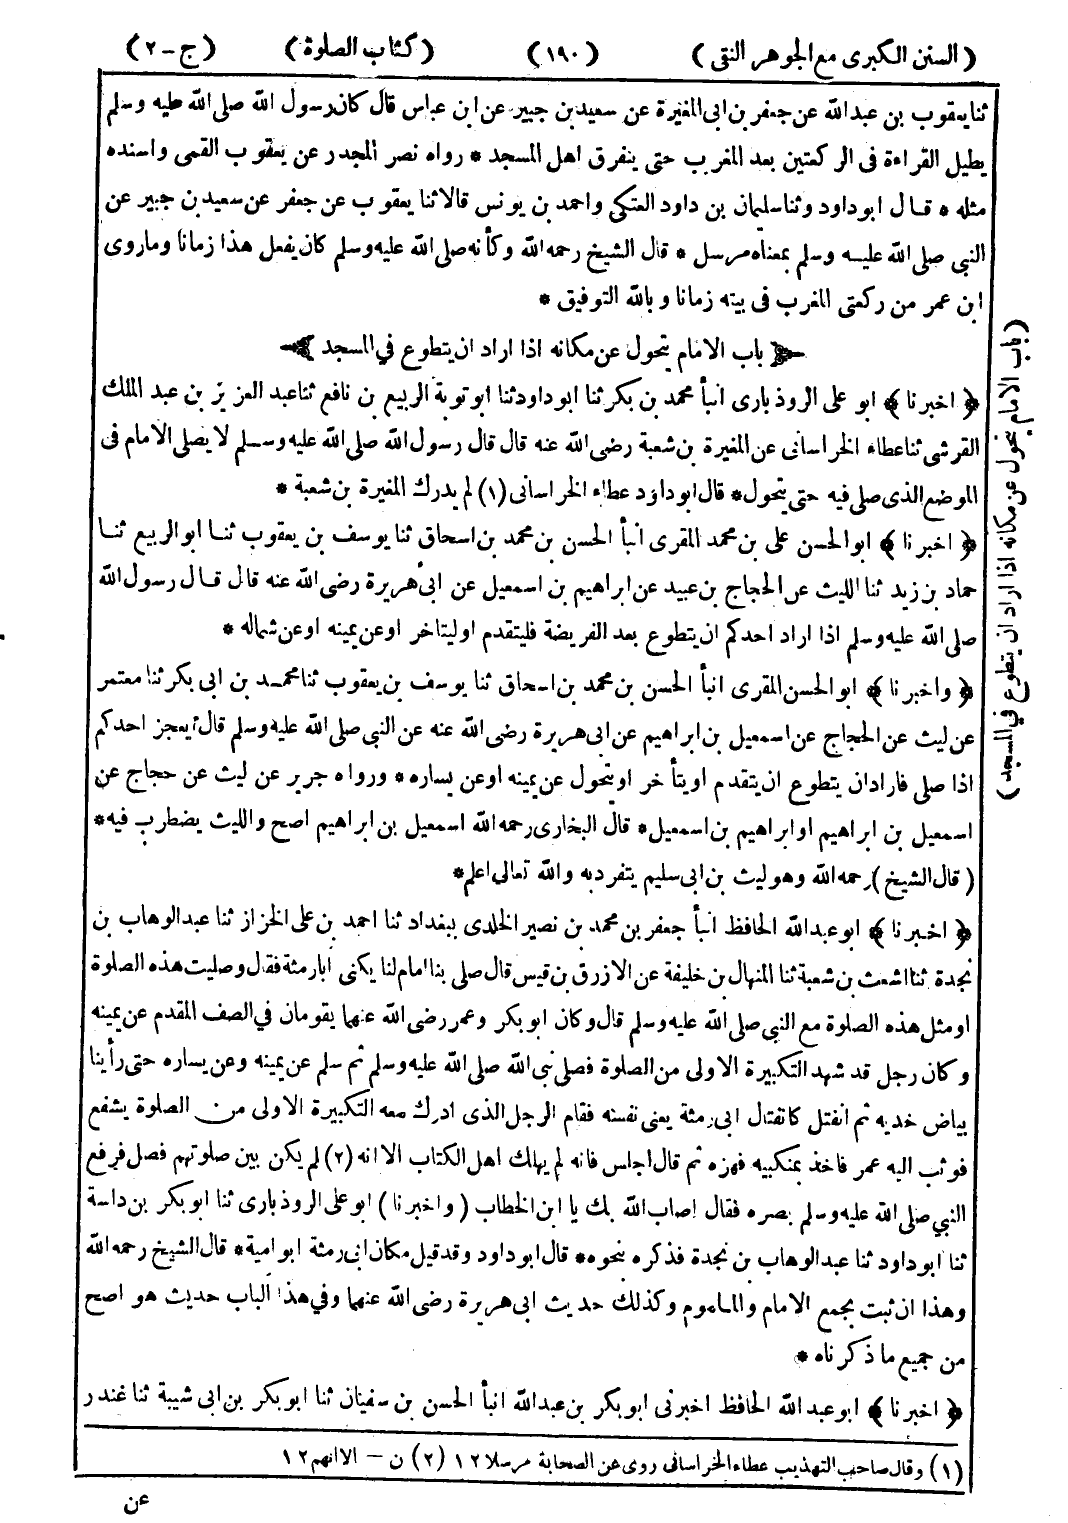 (السنن الكبرى مع الجوهر النقى) (١٩٠) (كتاب الصلوة) (ج-٢)
ثنا يعقوب بن عبدالله عن جعفر بن ابى المغيرة عن سعيد بن جبير عن ابن عباس قال كان رسول الله صلى الله عليه وسلم
يطيل القراءة فى الركعتين بعد المغرب حتى يتفرق اهل المسجد * رواه نصر المجدر عن يعقوب القمى واسنده
مثله * قال ابوداود وثنا سليمان بن داود العتكى واحمد بن يونس قالا ثنا يعقوب عن جعفر عن سعيد بن جبير عن
النبى صلى الله عليه وسلم بمعناه مرسل * قال الشيخ رحمه الله وكأنه صلى الله عليه وسلم كان يفعل هذا زمانا وماروى
ابن عمر من ركعتى المغرب فى بيته زمانا وبالله التوفيق *
باب الامام يتحول عن مكانه اذا اراد ان يتطوع في المسجد
﴿ اخبرنا ﴾ ابو على الروذبارى انبأ محمد بن بكر ثنا ابوداود ثنا ابو توبة الربيع بن نافع ثنا عبد العزيز بن عبد الملك
القرشى ثنا عطاء الخراسانى عن المغيرة بن شعبة رضى الله عنه قال قال رسول الله صلى الله عليه وسلم لا يصلى الامام فى
الموضع الذى صلى فيه حتى يتحول * قال ابوداود عطاء الخراسانى (١) لم يدرك المغيرة بن شعبة *
﴿ اخبرنا ﴾ ابو الحسن على بن محمد المقرى انبأ الحسن بن محمد بن اسحاق ثنا يوسف بن يعقوب ثنا ابو الربيع ثنا
حماد بن زيد ثنا الليث عن الحجاج بن عبيد عن ابراهيم بن اسمعيل عن ابى هريرة رضى الله عنه قال قال رسول الله
صلى الله عليه وسلم اذا اراد احدكم ان يتطوع بعد الفريضة فليتقدم او ليتاخر او عن يمينه او عن شماله *
﴿ واخبرنا ﴾ ابو الحسن المقرى انبأ الحسن بن محمد بن اسحاق ثنا يوسف بن يعقوب ثنا محمد بن ابى بكر ثنا معتمر
عن ليث عن الحجاج عن اسمعيل بن ابراهيم عن ابى هريرة رضى الله عنه عن النبى صلى الله عليه وسلم قال أيعجز احدكم
اذا صلى فاراد ان يتطوع ان يتقدم او يتأخر او يتحول عن يمينه او عن يساره * ورواه جرير عن ليث عن حجاج عن
اسمعيل بن ابراهيم او ابراهيم بن اسمعيل * قال البخارى رحمه الله اسمعيل بن ابراهيم اصح والليث يضطرب فيه *
(قال الشيخ) رحمه الله وهو ليث بن ابى سليم يتفرد به والله تعالى اعلم *
﴿ اخبرنا ﴾ ابو عبدالله الحافظ انبأ جعفر بن محمد بن نصير الخلدى ببغداد ثنا احمد بن على الخزاز ثنا عبدالوهاب بن
نجدة ثنا اشعث بن شعبة ثنا المنهال بن خليفة عن الازرق بن قيس قال صلى بنا امام لنا يكنى ابارمثة فقال وصليت هذه الصلوة
او مثل هذه الصلوة مع النبى صلى الله عليه وسلم قال وكان ابو بكر وعمر رضى الله عنهما يقومان في الصف المقدم عن يمينه
وكان رجل قد شهد التكبيرة الاولى من الصلوة فصلى نبى الله صلى الله عليه وسلم ثم سلم عن يمينه وعن يساره حتى رأينا
بياض خديه ثم انفتل كانفتال ابى رمثة يعنى نفسه فقام الرجل الذى ادرك معه التكبيرة الاولى من الصلوة يشفع
فوثب اليه عمر فاخذ بمنكبيه فهزه ثم قال اجلس فانه لم يهلك اهل الكتاب الا انه (٢) لم يكن بين صلوتهم فصل فرفع
النبي صلى الله عليه وسلم بصره فقال اصاب الله بك يا ابن الخطاب (واخبرنا) ابو على الروذبارى ثنا ابو بكر بن داسة
ثنا ابو داود ثنا عبدالوهاب بن نجدة فذكره بنحوه * قال ابو داود وقد قيل مكان ابى رمثة ابو امية * قال الشيخ رحمه الله
وهذا ان ثبت يجمع الامام والماموم وكذلك حديث ابى هريرة رضى الله عنهما وفي هذا الباب حديث هو اصح
من جميع ما ذكرناه *
﴿ اخبرنا ﴾ ابو عبد الله الحافظ اخبرنى ابو بكر بن عبدالله انبأ الحسن بن سفيان ثنا ابو بكر بن ابى شيبة ثنا غندر
(١) وقال صاحب التهذيب عطاء الخراسانى روى عن الصحابة مرسلا ١٢ (٢) ن - الا انهم ١٢
عن
(باب الامام يتحول عن مكانه اذا اراد ان يتطوع في المسجد)